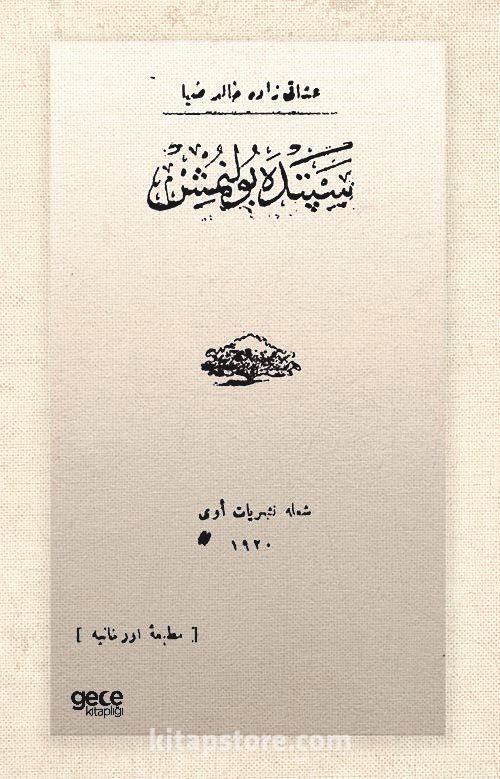 عشاقی زاده خالد ضیا
سپتده بولنمش
شعله نشریات أوی
١٩٢٠
[ مطبعهٔ اورخانیه ]
gece
kitaplığı
kitapstore.com